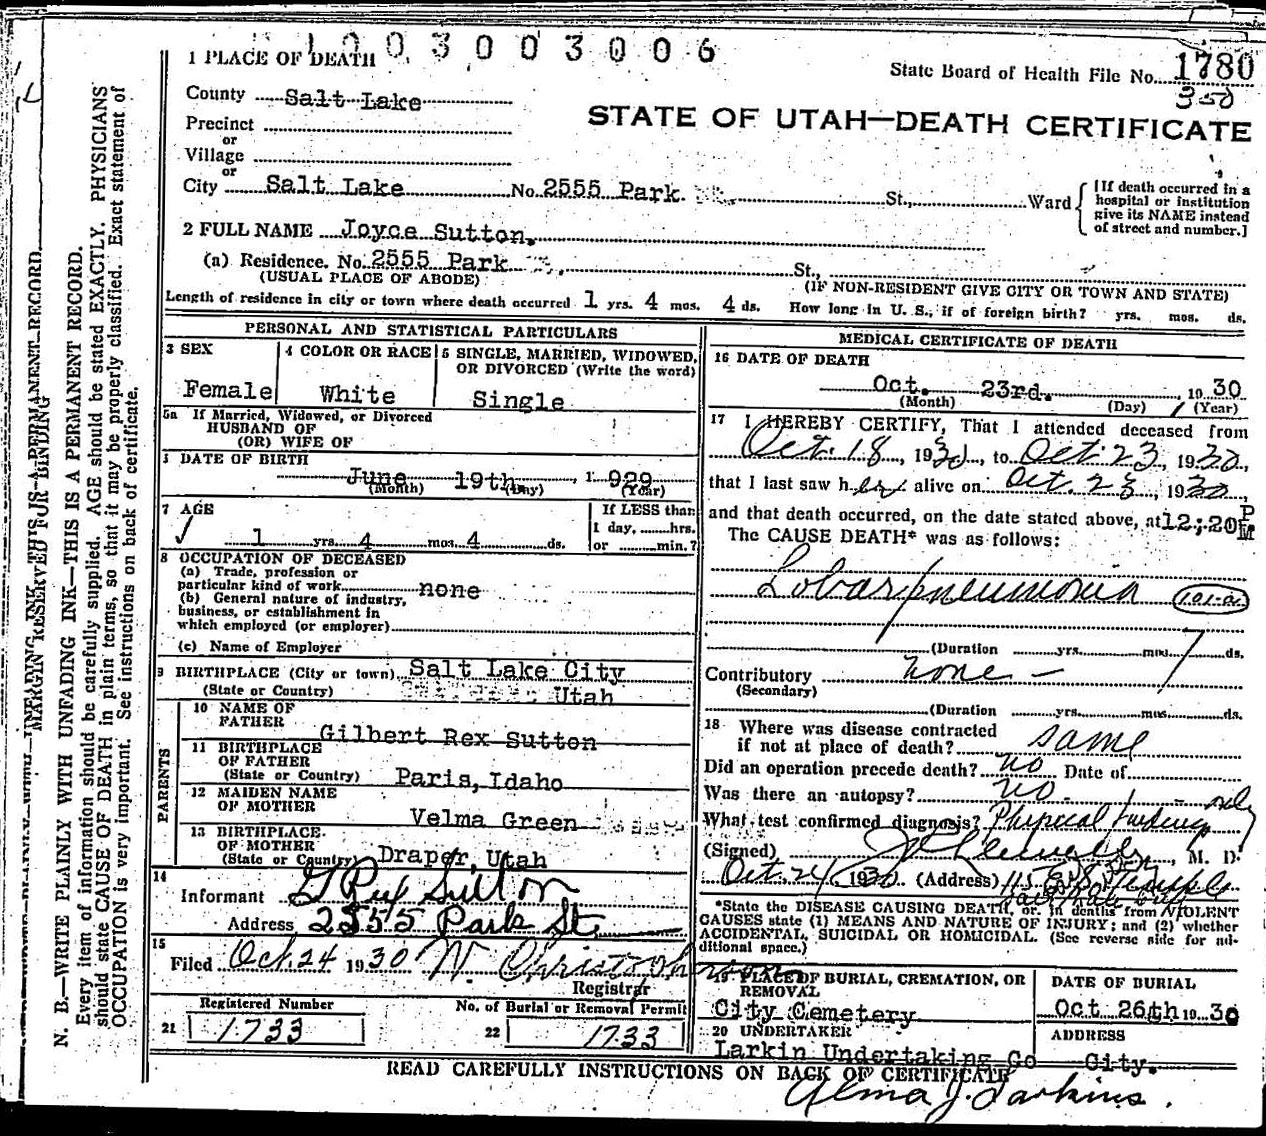 1003003006
1 PLACE OF DEATH
State Board of Health File No. 1780
350
County Salt Lake
STATE OF UTAH—DEATH CERTIFICATE
Precinct
or
Village
or
City Salt Lake No. 2555 Park St., Ward
[If death occurred in a hospital or institution give its NAME instead of street and number.]
2 FULL NAME Joyce Sutton.
(a) Residence. No. 2555 Park St.,
(USUAL PLACE OF ABODE) (IF NON-RESIDENT GIVE CITY OR TOWN AND STATE)
Length of residence in city or town where death occurred 1 yrs. 4 mos. 4 ds. How long in U. S., if of foreign birth? yrs. mos. ds.
PERSONAL AND STATISTICAL PARTICULARS
3 SEX
Female
4 COLOR OR RACE
White
5 SINGLE, MARRIED, WIDOWED,
OR DIVORCED (Write the word)
Single
5a If Married, Widowed, or Divorced
HUSBAND OF
(OR) WIFE OF
DATE OF BIRTH
June 19th. 1929
(Month) (Day) (Year)
7 AGE
1 yrs. 4 mos. 4 ds.
If LESS than
1 day, hrs.
or min.?
8 OCCUPATION OF DECEASED
(a) Trade, profession or
particular kind of work none
(b) General nature of industry,
business, or establishment in
which employed (or employer)
(c) Name of Employer
9 BIRTHPLACE (City or town) Salt Lake City
(State or Country) Utah
PARENTS
10 NAME OF
FATHER Gilbert Rex Sutton
11 BIRTHPLACE
OF FATHER
(State or Country) Paris, Idaho
12 MAIDEN NAME
OF MOTHER Velma Green
13 BIRTHPLACE
OF MOTHER
(State or Country) Draper, Utah
14
Informant G Rex Sutton
Address 2555 Park St.
15
Filed Oct. 24 1930 W. Christopherson
Registrar
Registered Number
21 1733
No. of Burial or Removal Permit
22 1733
MEDICAL CERTIFICATE OF DEATH
16 DATE OF DEATH
Oct. 23rd. , 1930
(Month) (Day) (Year)
17 I HEREBY CERTIFY, That I attended deceased from
Oct. 18, 1930, to Oct. 23, 1930,
that I last saw her alive on Oct. 23, 1930,
and that death occurred, on the date stated above, at 12;20 P M
The CAUSE DEATH* was as follows:
Lobar pneumonia 101-a
(Duration yrs. mos. 7 ds.
Contributory none —
(Secondary)
(Duration yrs. mos. ds.
18 Where was disease contracted
if not at place of death? same
Did an operation precede death? no Date of
Was there an autopsy? no
What test confirmed diagnosis? Physical findings only
(Signed) , M. D.
Oct. 24, 1930 (Address) 115 E So. Temple
Salt Lake City
*State the DISEASE CAUSING DEATH, or, in deaths from VIOLENT
CAUSES state (1) MEANS AND NATURE OF INJURY; and (2) whether
ACCIDENTAL, SUICIDAL OR HOMICIDAL. (See reverse side for ad-
ditional space.)
19 PLACE OF BURIAL, CREMATION, OR
REMOVAL
City Cemetery
DATE OF BURIAL
Oct 26th 1930
20 UNDERTAKER
Larkin Undertaking Co
ADDRESS
City.
READ CAREFULLY INSTRUCTIONS ON BACK OF CERTIFICATE
Alma J. Larkins.
MARGIN RESERVED FOR BINDING
N. B.—WRITE PLAINLY WITH UNFADING INK—THIS IS A PERMANENT RECORD.
Every item of information should be carefully supplied. AGE should be stated EXACTLY. PHYSICIANS
should state CAUSE OF DEATH in plain terms, so that it may be properly classified. Exact statement of
OCCUPATION is very important. See instructions on back of certificate.